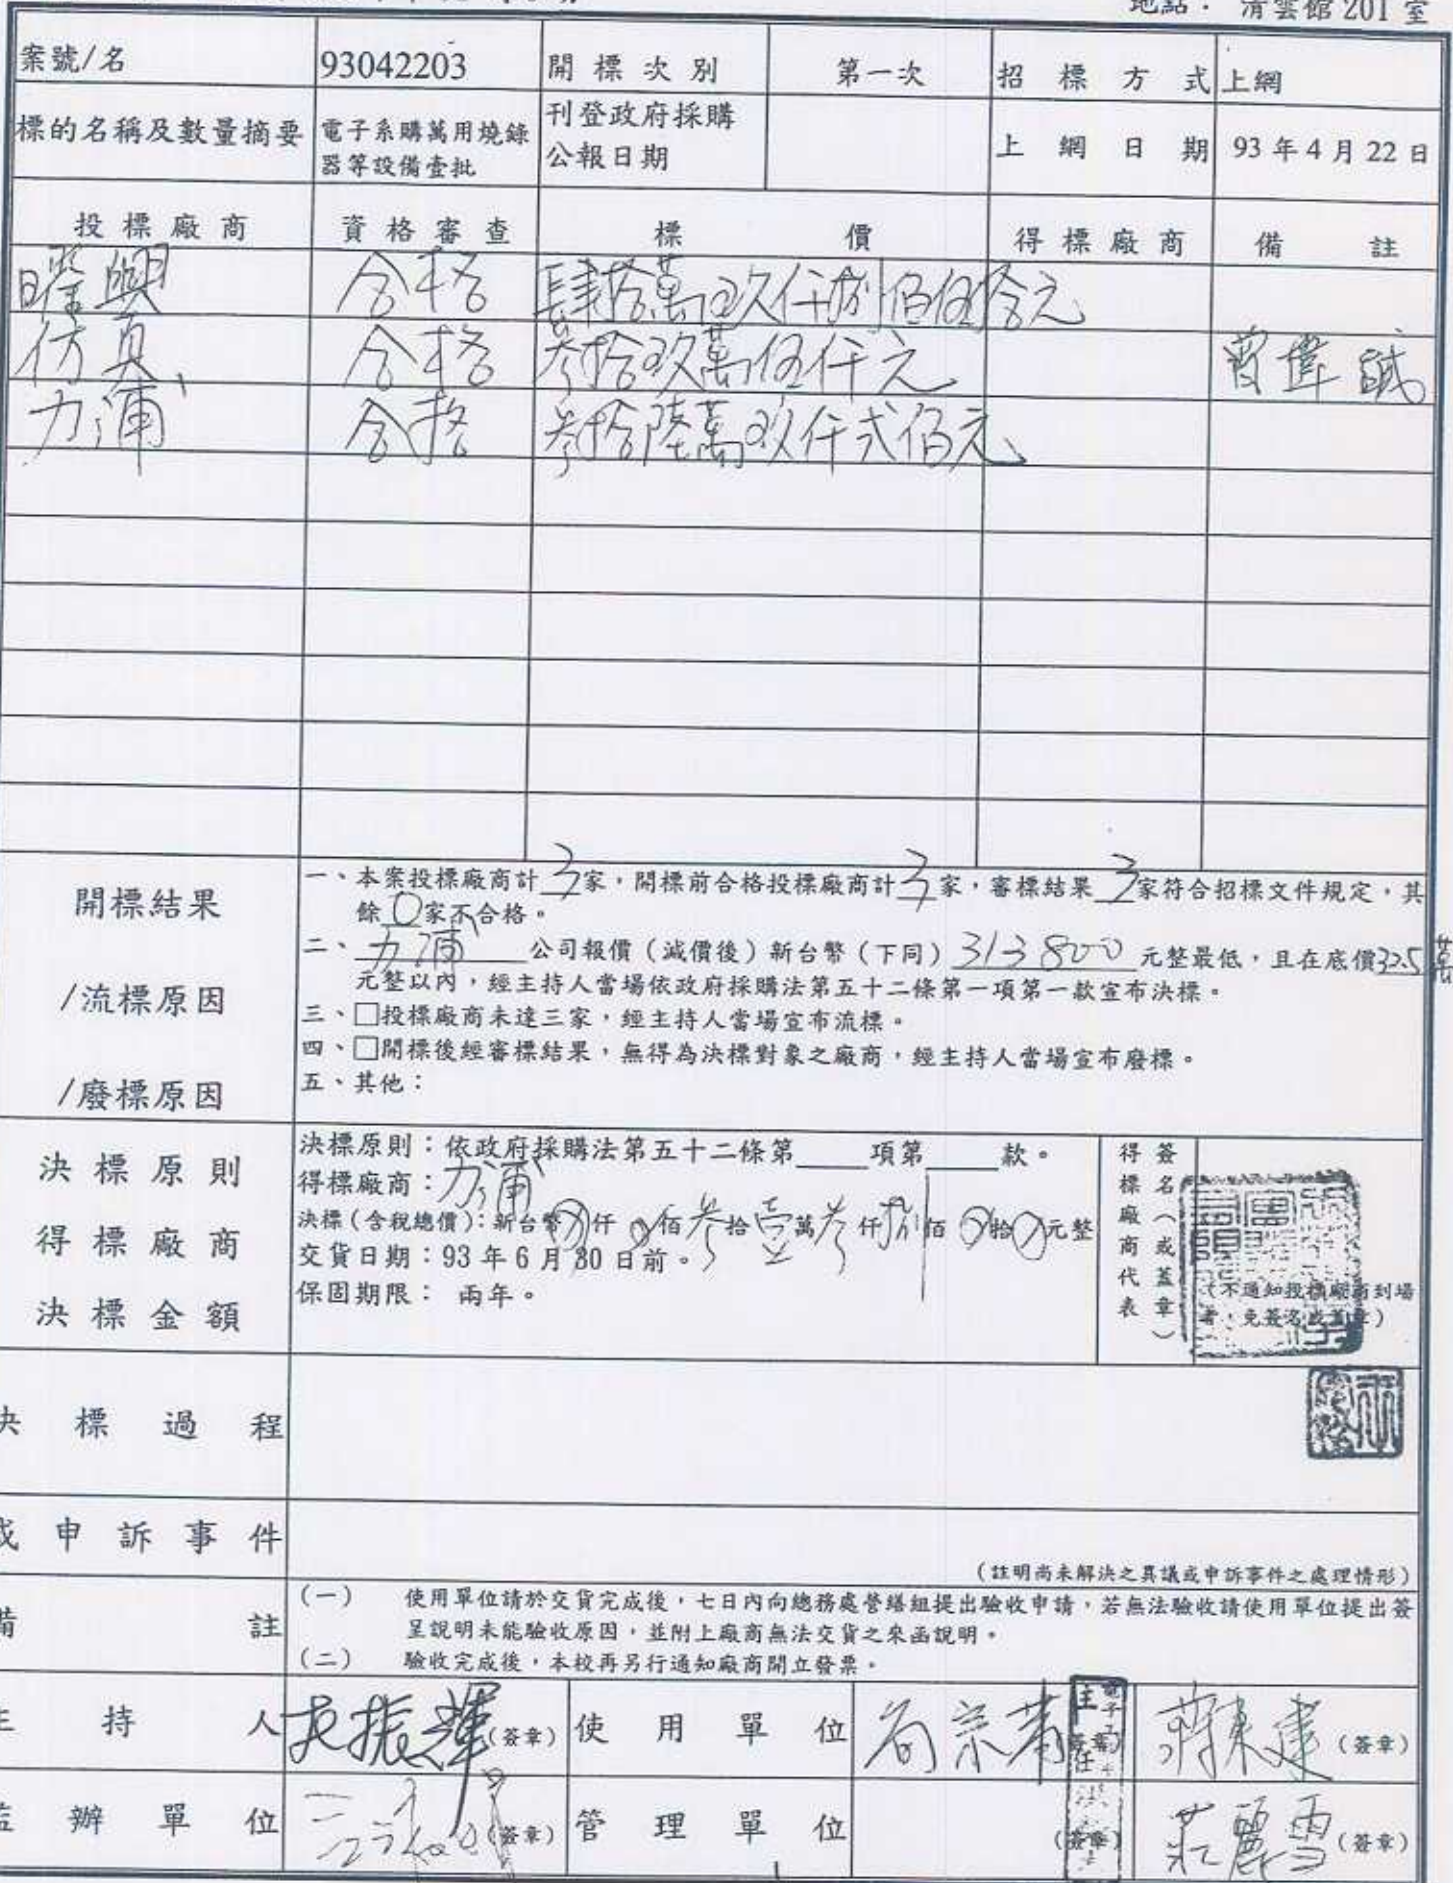 地點： 清雲館 201 室
案號/名 93042203 開標次別 第一次 招標方式 上網
標的名稱及數量摘要 電子系購萬用燒錄器等設備壹批 刊登政府採購公報日期 上網日期 93 年 4 月 22 日
投標廠商 資格審查 標價 得標廠商 備註
合格 肆拾萬玖仟捌佰伍拾元
仿真 合格 參拾玖萬伍仟元 曾偉誠
力浦 合格 參拾陸萬玖仟貳佰元
開標結果
/流標原因
/廢標原因
一、本案投標廠商計 3 家，開標前合格投標廠商計 3 家，審標結果 3 家符合招標文件規定，其
餘 0 家不合格。
二、力浦 公司報價（減價後）新台幣（下同）313800 元整最低，且在底價 32.5萬
元整以內，經主持人當場依政府採購法第五十二條第一項第一款宣布決標。
三、□投標廠商未達三家，經主持人當場宣布流標。
四、□開標後經審標結果，無得為決標對象之廠商，經主持人當場宣布廢標。
五、其他：
決標原則
得標廠商
決標金額
決標原則：依政府採購法第五十二條第____項第____款。
得標廠商：力浦
決標(含稅總價)：新台幣 0 仟 0 佰參拾壹萬參仟捌佰 0 拾 0 元整
交貨日期：93 年 6 月 30 日前。
保固期限： 兩年。
得標廠商代表
簽名（或蓋章）
（不通知投標廠商到場
者，免簽名或蓋章）
決標過程
或申訴事件
（註明尚未解決之異議或申訴事件之處理情形）
備註
（一） 使用單位請於交貨完成後，七日內向總務處營繕組提出驗收申請，若無法驗收請使用單位提出簽
呈說明未能驗收原因，並附上廠商無法交貨之來函說明。
（二） 驗收完成後，本校再另行通知廠商開立發票。
主持人 (簽章) 使用單位 (簽章)
監辦單位 (簽章) 管理單位 (簽章) 莊麗雪 (簽章)